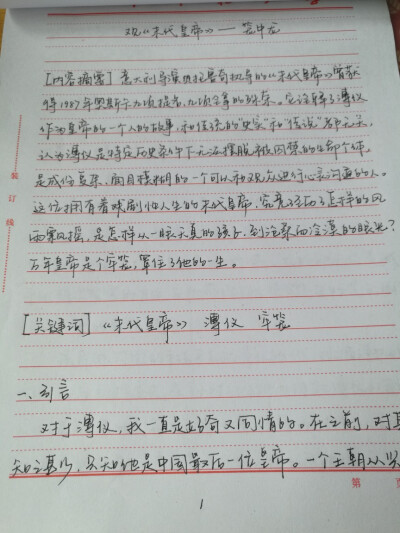 观《末代皇帝》——笼中龙
[内容摘要] 意大利导演贝托鲁奇执导的《末代皇帝》曾获
得1987年奥斯卡九项提名，九项全拿的殊荣。它诠释了溥仪
作为皇帝的一个人的故事，和传统的“史实”和“传说”都无关，
认为溥仪是特定历史条件下无法摆脱被囚禁的生命个体，
是成份复杂，面目模糊的一个可以和观众进行心灵沟通的人。
这位拥有着戏剧性人生的末代皇帝，究竟经历了怎样的风
雨飘摇，是怎样从一眼天真的孩子，到沧桑而冷漠的眼神？
万年皇帝是个牢笼，罩住了他的一生。
[关键词]《末代皇帝》 溥仪 牢笼
一、引言
对于溥仪，我一直是好奇又同情的。在之前，对其
知之甚少，只知他是中国最后一位皇帝。一个王朝从兴
装订线
第 页
1